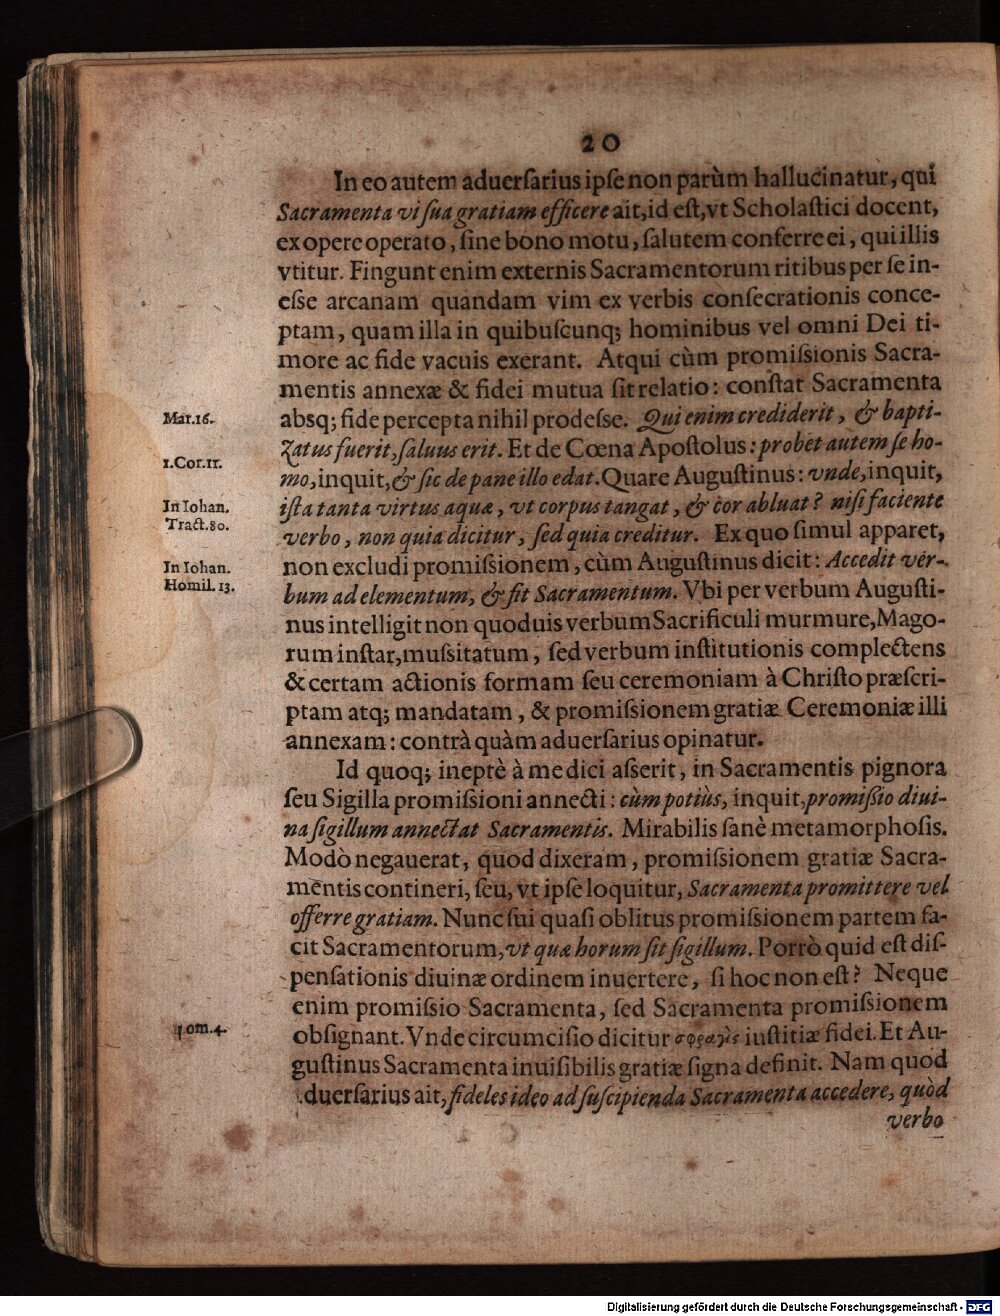 20
In eo autem aduerſarius ipſe non parùm hallucinatur, qui
Sacramenta vi ſua gratiam efficere ait, id eſt, vt Scholaſtici docent,
ex opere operato, ſine bono motu, ſalutem conferre ei, qui illis
vtitur. Fingunt enim externis Sacramentorum ritibus per ſe in-
eſſe arcanam quandam vim ex verbis conſecrationis conce-
ptam, quam illa in quibuſcunq; hominibus vel omni Dei ti-
more ac fide vacuis exerant. Atqui cùm promiſsionis Sacra-
mentis annexæ & fidei mutua ſit relatio: conſtat Sacramenta
Mar.16.
abſq; fide percepta nihil prodeſſe. Qui enim crediderit, & bapti-
zatus fuerit, ſaluus erit. Et de Cœna Apoſtolus: probet autem ſe ho-
1.Cor.11.
mo, inquit, & ſic de pane illo edat. Quare Auguſtinus: vnde, inquit,
In Iohan.
Tract.80.
iſta tanta virtus aquæ, vt corpus tangat, & cor abluat? niſi faciente
verbo, non quia dicitur, ſed quia creditur. Ex quo ſimul apparet,
In Iohan.
Homil.13.
non excludi promiſsionem, cùm Auguſtinus dicit: Accedit ver-
bum ad elementum, & fit Sacramentum. Vbi per verbum Auguſti-
nus intelligit non quoduis verbum Sacrificuli murmure, Mago-
rum inſtar, muſsitatum, ſed verbum inſtitutionis complectens
& certam actionis formam ſeu ceremoniam à Chriſto præſcri-
ptam atq; mandatam, & promiſsionem gratiæ Ceremoniæ illi
annexam: contrà quàm aduerſarius opinatur.
Id quoq; ineptè à me dici aſſerit, in Sacramentis pignora
ſeu Sigilla promiſsioni annecti: cùm potiùs, inquit, promiſsio diui-
na ſigillum annectat Sacramentis. Mirabilis ſanè metamorphoſis.
Modò negauerat, quod dixeram, promiſsionem gratiæ Sacra-
mentis contineri, ſeu, vt ipſe loquitur, Sacramenta promittere vel
offerre gratiam. Nunc ſui quaſi oblitus promiſsionem partem fa-
cit Sacramentorum, vt quæ horum ſit ſigillum. Porrò quid eſt diſ-
penſationis diuinæ ordinem inuertere, ſi hoc non eſt? Neque
enim promiſsio Sacramenta, ſed Sacramenta promiſsionem
Rom.4.
obſignant. Vnde circumciſio dicitur σφραγὶς iuſtitiæ fidei. Et Au-
guſtinus Sacramenta inuiſibilis gratiæ ſigna definit. Nam quod
aduerſarius ait, fideles ideo ad ſuſcipienda Sacramenta accedere, quòd
verbo
Digitalisierung gefördert durch die Deutsche Forschungsgemeinschaft - DFG